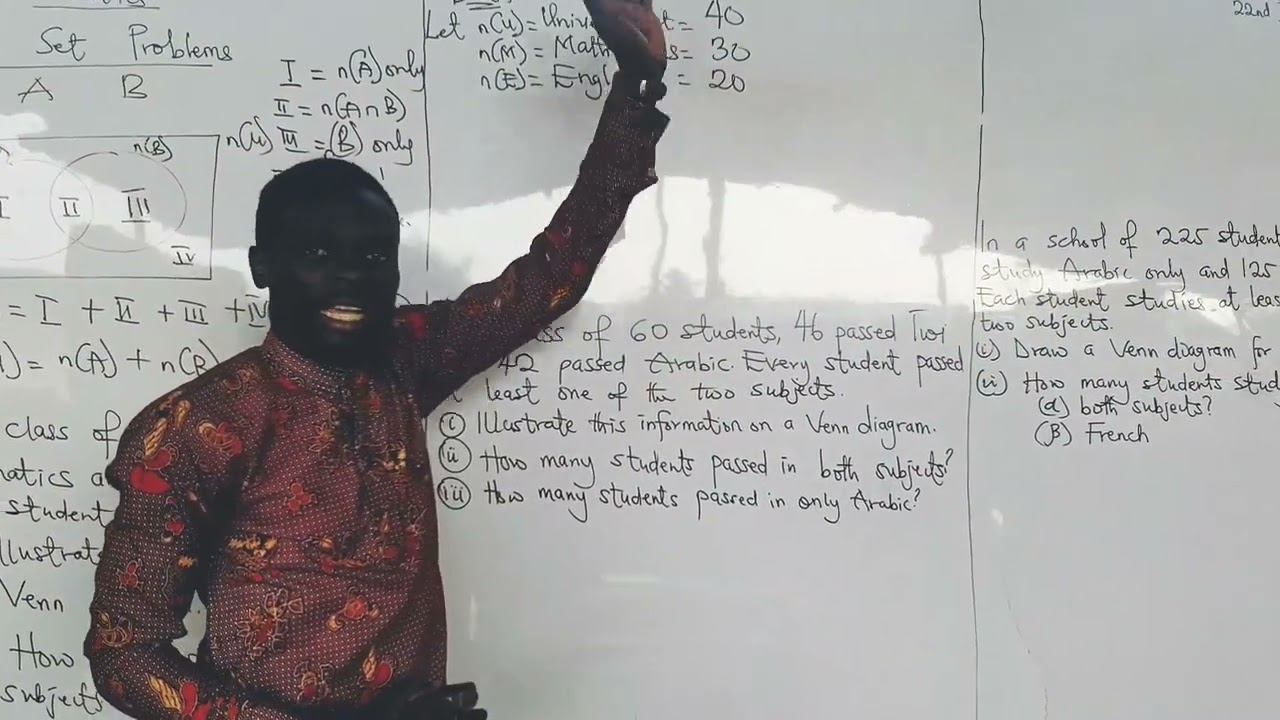 Set Problems
A B
I = n(A) only
II = n(A n B)
n(U) III = (B) only
n(B)
I II III
IV
= I + II + III + IV
= n(A) + n(B
class of
student
Venn
How
subjects
Let n(U) = = 40
n(M) = = 30
n(E) = = 20
of 60 students, 46 passed Twi
42 passed Arabic. Every student passed
least one of the two subjects.
(i) Illustrate this information on a Venn diagram.
(ii) How many students passed in both subjects?
(iii) How many students passed in only Arabic?
22nd
In a school of 225 student
study Arabic only and 125
Each student studies at leas
two subjects.
(i) Draw a Venn diagram for
(ii) How many students stud
(a) both subjects?
(B) French